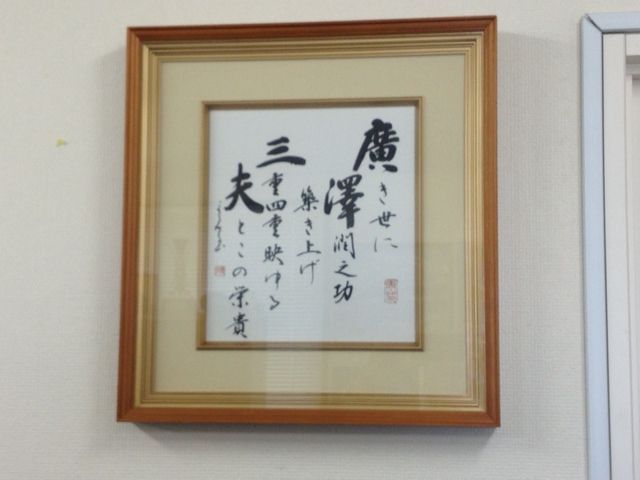 廣き世に
澤潤之功
築き上げ
三重四重映ゆる
夫とこの栄貴